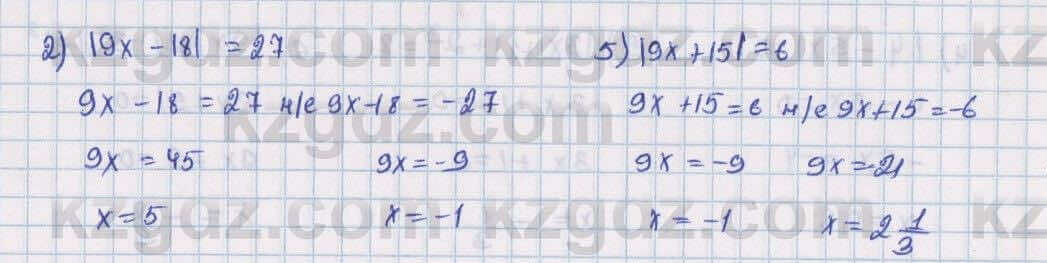 2) |9x - 18| = 27
9x - 18 = 27 н/е 9x-18 = -27
9x = 45 9x = -9
x = 5 x = -1
5) |9x + 15| = 6
9x + 15 = 6 н/е 9x+15 = -6
9x = -9 9x = -21
x = -1 x = 2 1/3
kzgdz.com